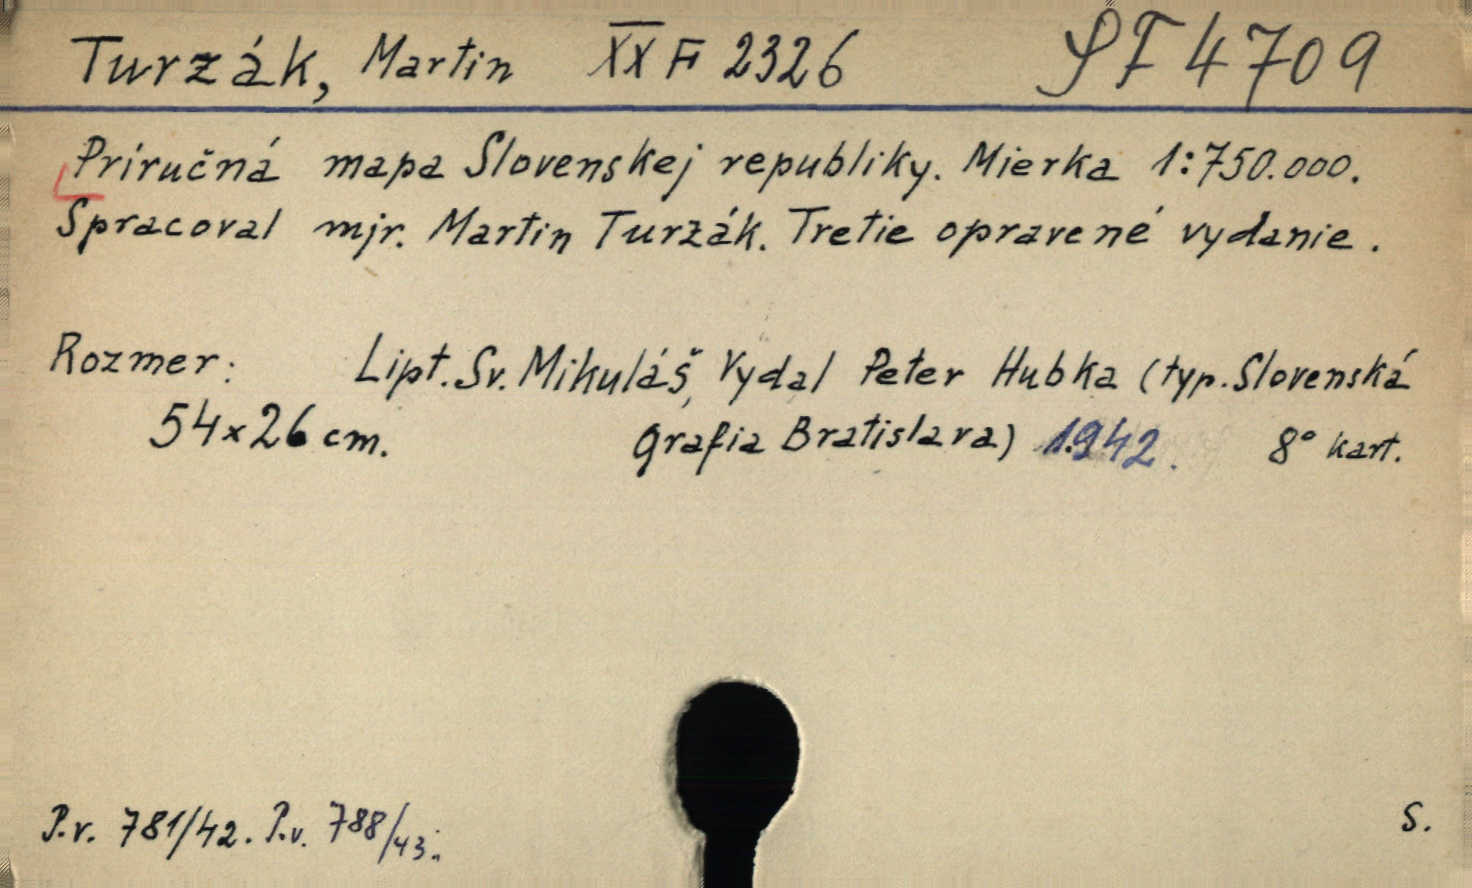 Turzák, Martin XX F 2326 SF 4709
Príručná mapa Slovenskej republiky. Mierka 1:750.000.
Spracoval mjr. Martin Turzák. Tretie opravené vydanie.
Rozmer: Lipt. Sv. Mikuláš, Vydal Peter Hubka (typ. Slovenská
54x26 cm. Grafia Bratislava) 1942. 8° kart.
P.v. 781/42. P.v. 788/43.
S.